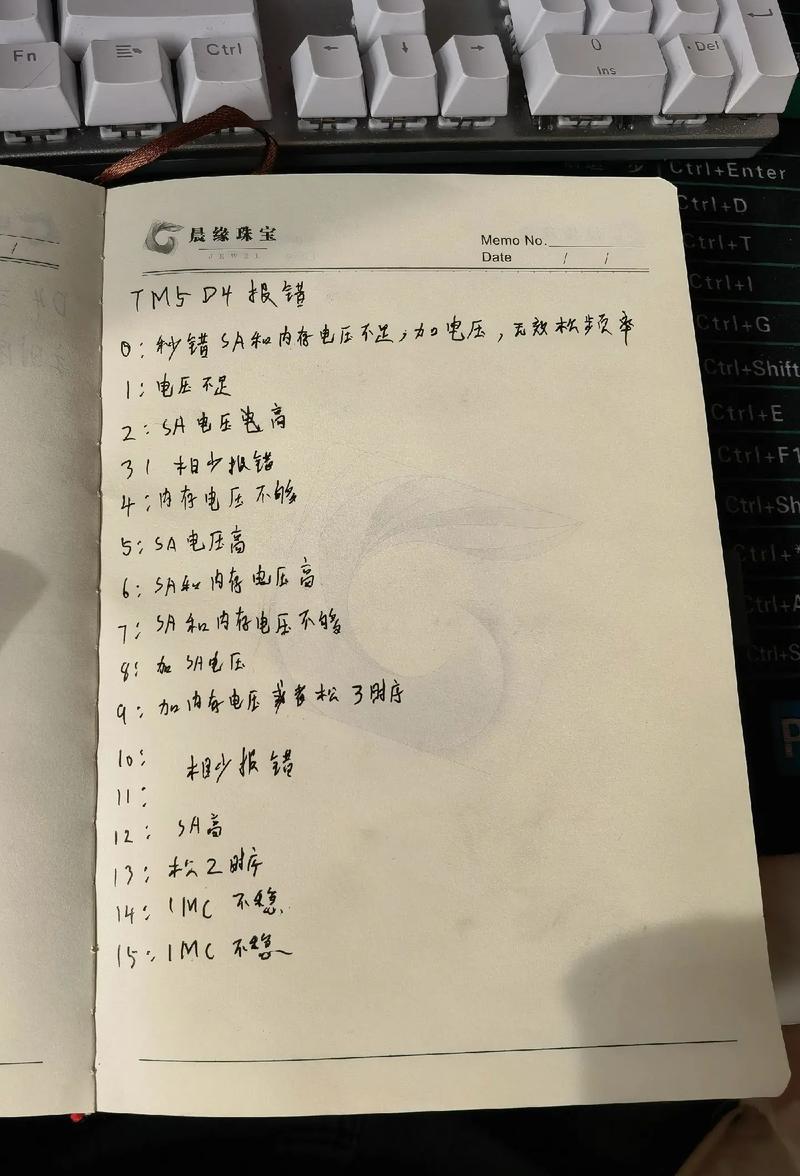 Fn
Ctrl
←
↓
→
0
Ins
Del
Ctrl+Enter
Ctrl+D
Ctrl+T
Ctrl+I
Ctrl+G
Ctrl+Shift
Ctrl+E
Ctrl+F1
Ctrl+Sh
Ctrl+*
Ctrl+A
Ctrl+S
晨缘珠宝
JEWEL
Memo No.
Date / /
TM5 D4 报错
0: 秒错 SA和内存电压不足,加电压,无效松频率
1: 电压不足
2: SA电压高
3: 报错
4: 内存电压不够
5: SA电压高
6: SA和内存电压高
7: SA和内存电压不够
8: 加SA电压
9: 加内存电压或者松3时序
10: 报错
11:
12: SA高
13: 松2时序
14: IMC 不稳
15: IMC 不稳